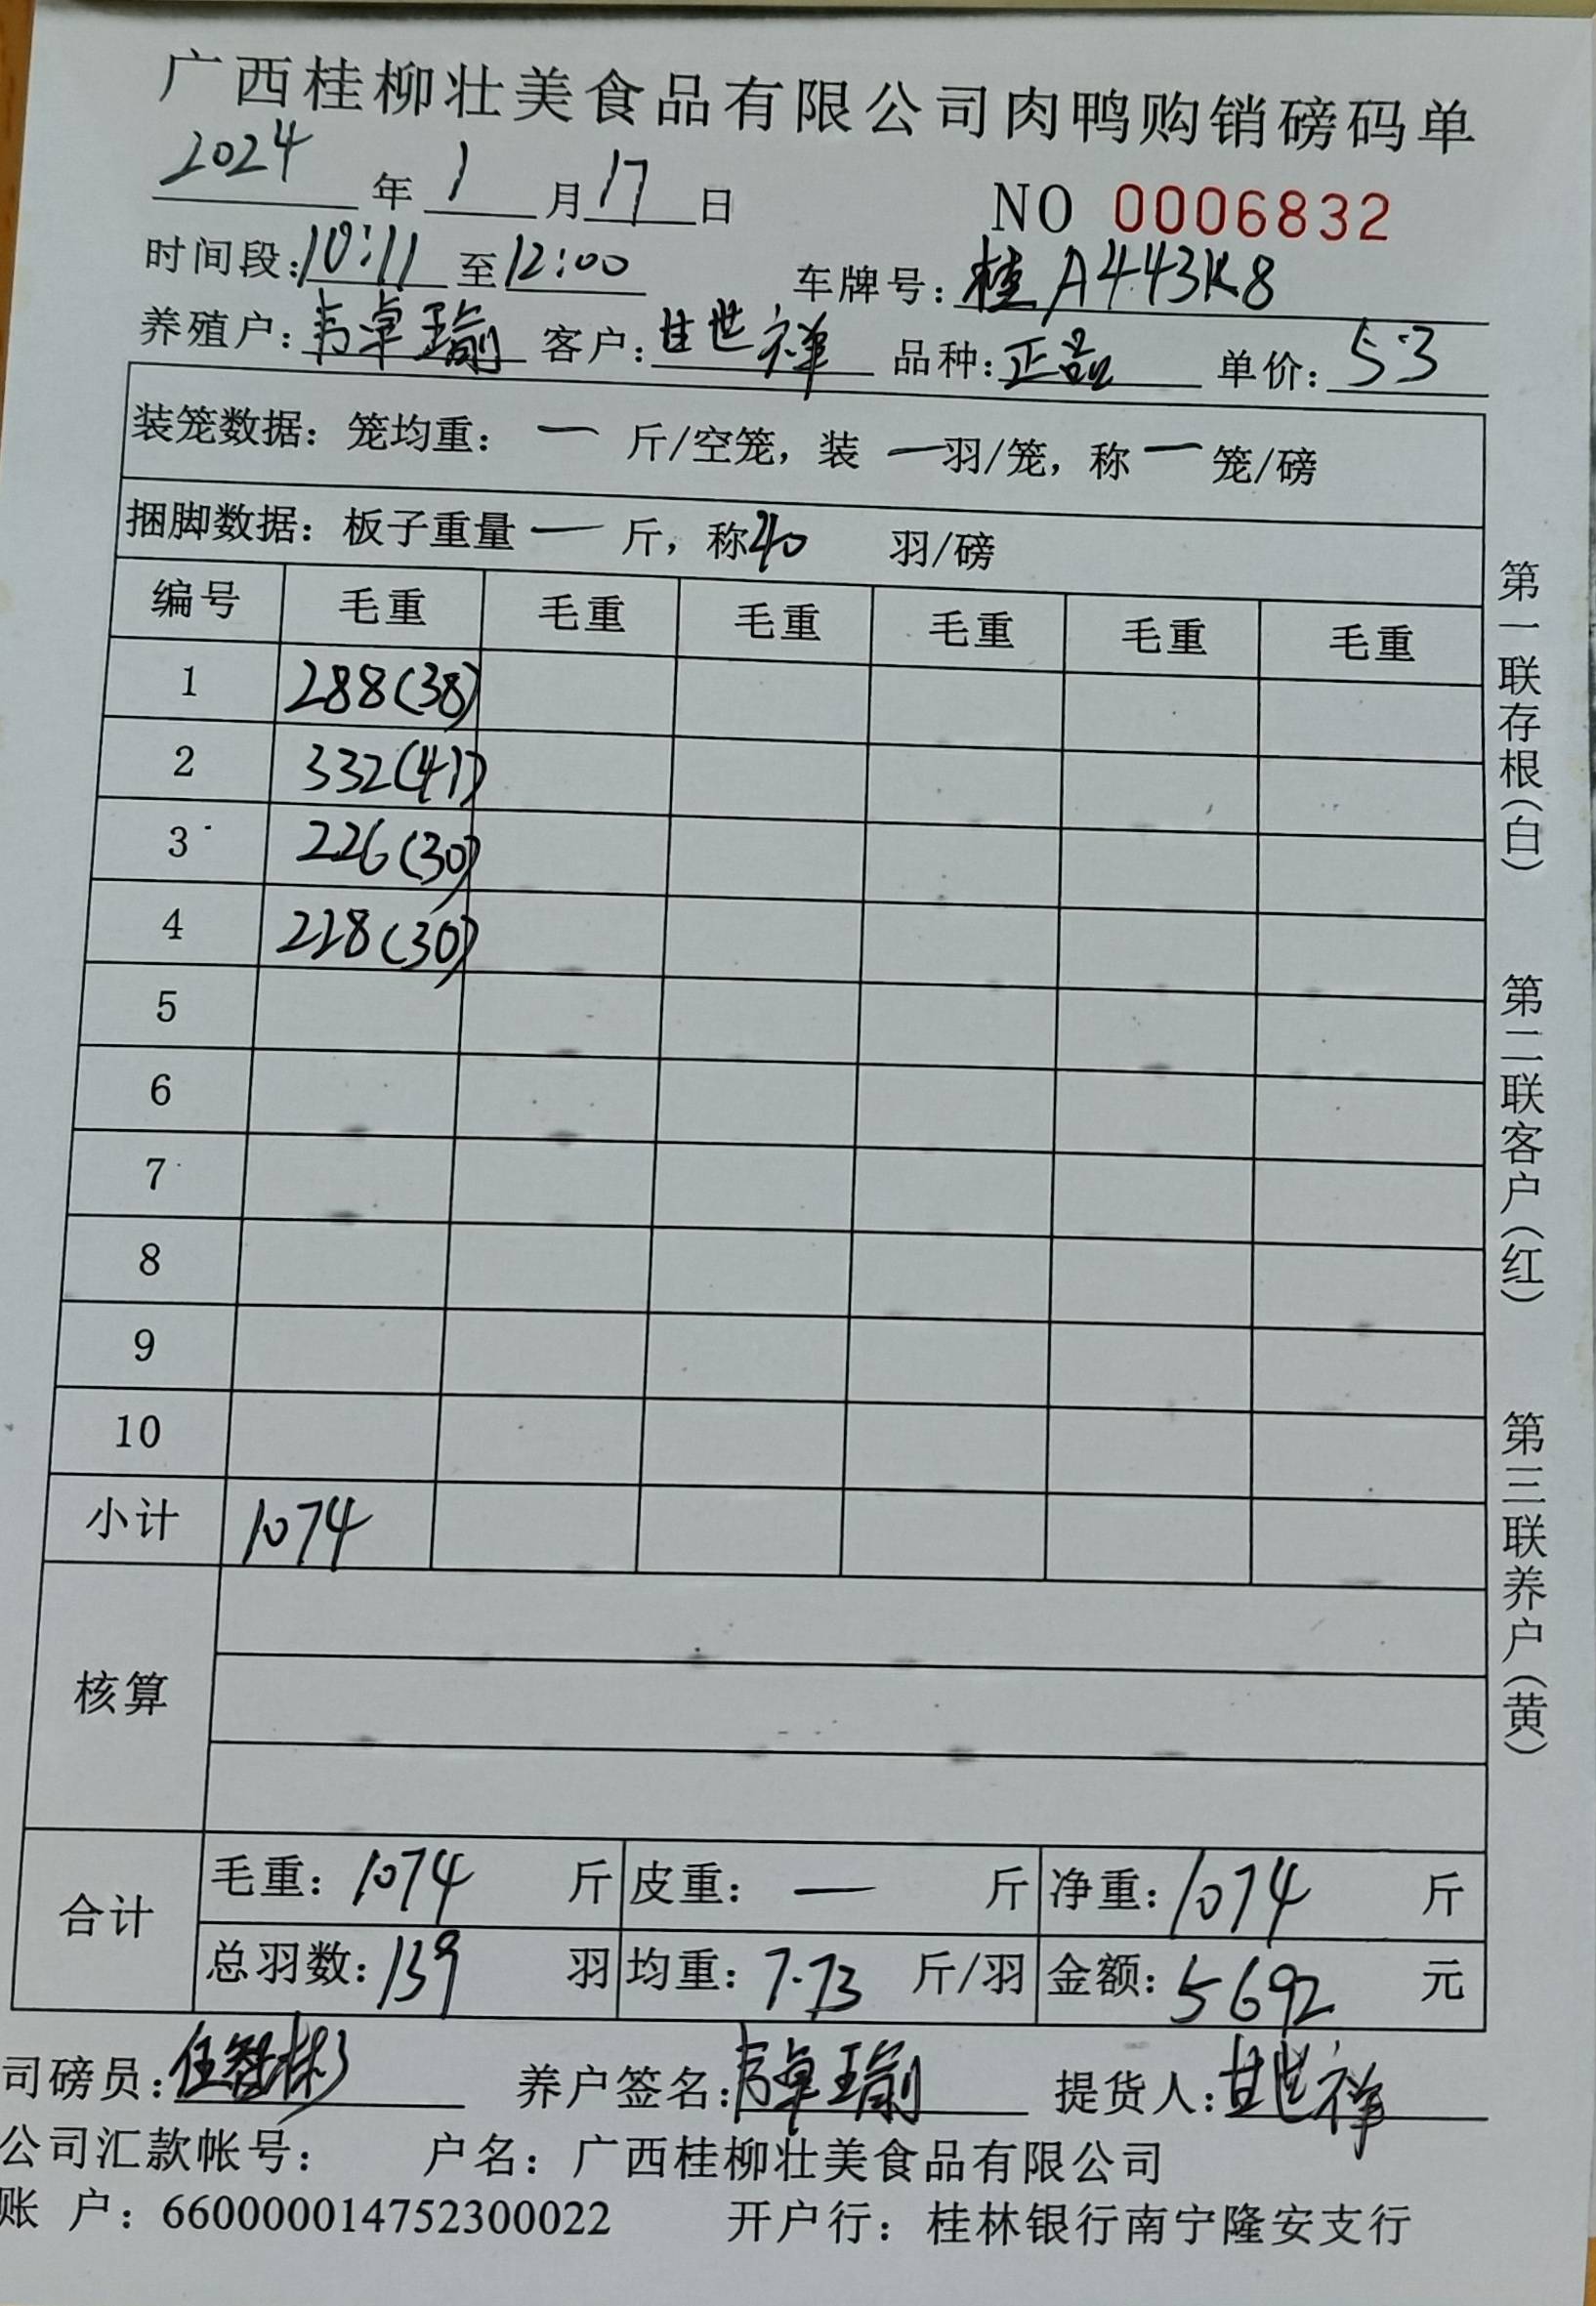 广西桂柳壮美食品有限公司肉鸭购销磅码单
2024年1月17日 NO 0006832
时间段:10:11至12:00 车牌号:桂A443K8
养殖户:韦卓瑜 客户:甘世祥 品种:正品 单价:5.3
装笼数据:笼均重:一 斤/空笼,装 一羽/笼,称一笼/磅
捆脚数据:板子重量一 斤,称40 羽/磅
编号 毛重 毛重 毛重 毛重 毛重 毛重
1 288(38)
2 332(41)
3 226(30)
4 228(30)
5
6
7
8
9
10
小计 1074
核算
合计 毛重:1074 斤 皮重:一 斤 净重:1074 斤
总羽数:139 羽 均重:7.73 斤/羽 金额:5692 元
司磅员:任智彬 养户签名:韦卓瑜 提货人:甘世祥
公司汇款帐号: 户名:广西桂柳壮美食品有限公司
账 户:660000014752300022 开户行:桂林银行南宁隆安支行
第一联存根(白) 第二联客户(红) 第三联养户(黄)